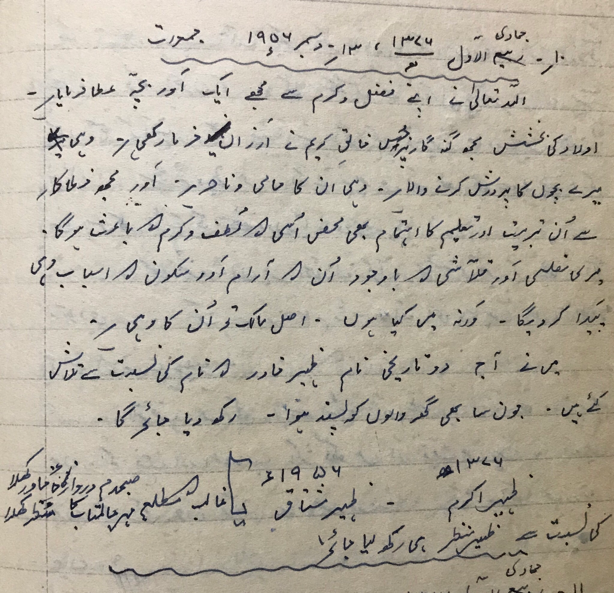 جمادی
۱۰۔ ربیع الاوّل ۱۳۷۶ھ ، ۱۳۔ دسمبر ۱۹۵۶ء جمعرات
اللہ تعالیٰ نے اپنے فضل و کرم سے مجھے ایک اَور بچّہ عطا فرمایا ہے۔
اولاد کی بخشش مجھ گنہ گار پر جس خالقِ کریم نے ارزانی فرما رکھی ہے۔ وہی
میرے بچوں کا پرورش کرنے والا ہے۔ وہی ان کا حامی و ناصر ہے۔ اَور مجھ خطا کار
سے اُن تربیت اور تعلیم کا اہتمام بھی محض اُسی کے لُطف و کرم کے باعث ہوگا۔
میری مفلسی اَور قلّاشی کے باوجود اُن کے آرام اَور سکون کے اسباب وہی
پَیدا کر دیگا۔ وَرنہ میں کیا ہوں۔ اصل مالک تو اُن کا وہی ہے۔
میں نے آج دو تاریخی نام ظہیر قادر کے نام کی نسبت سے تلاش
کئے ہیں۔ جون سا بھی گھر والوں کو پسند ہوا۔ رکھ دیا جائے گا۔
۱۳۷۶ھ ۱۹۵۶ء
ظہیر اکرم ۔ ظہیر مشتاق یا غالب کے مطلع صبحدم دروازۂ خاور کھلا
مہرِ عالمتاب کا منظر کھلا
کی نسبت سے ظہیر منظر ہی رکھ لیا جائے!
جمادی